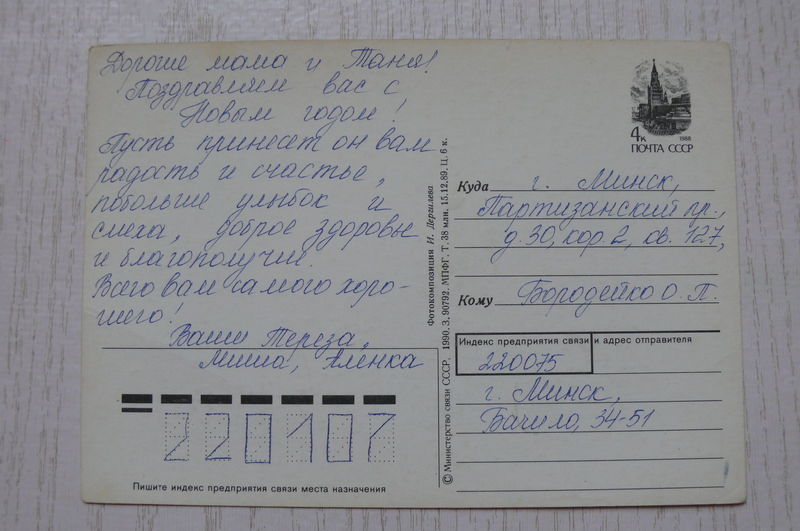 Дорогие мама и Таня!
Поздравляем вас с
Новым годом!
Пусть принесет он вам
радость и счастье,
побольше улыбок и
смеха, доброе здоровье
и благополучие.
Всего вам самого хоро-
шего!
Ваши Тереза,
Миша, Аленка
220107
Пишите индекс предприятия связи места назначения
© Министерство связи СССР, 1990. З. 90792. МПФГ. Т. 38 млн. 15.12.89. Ц. 6 к.
Фотокомпозиция И. Дергилева
4к
1988
ПОЧТА СССР
Куда г. Минск,
Партизанский пр.,
д. 30, кор. 2, кв. 127,
Кому Бородейко О. П.
Индекс предприятия связи и адрес отправителя
220075
г. Минск,
Бачило, 34-51